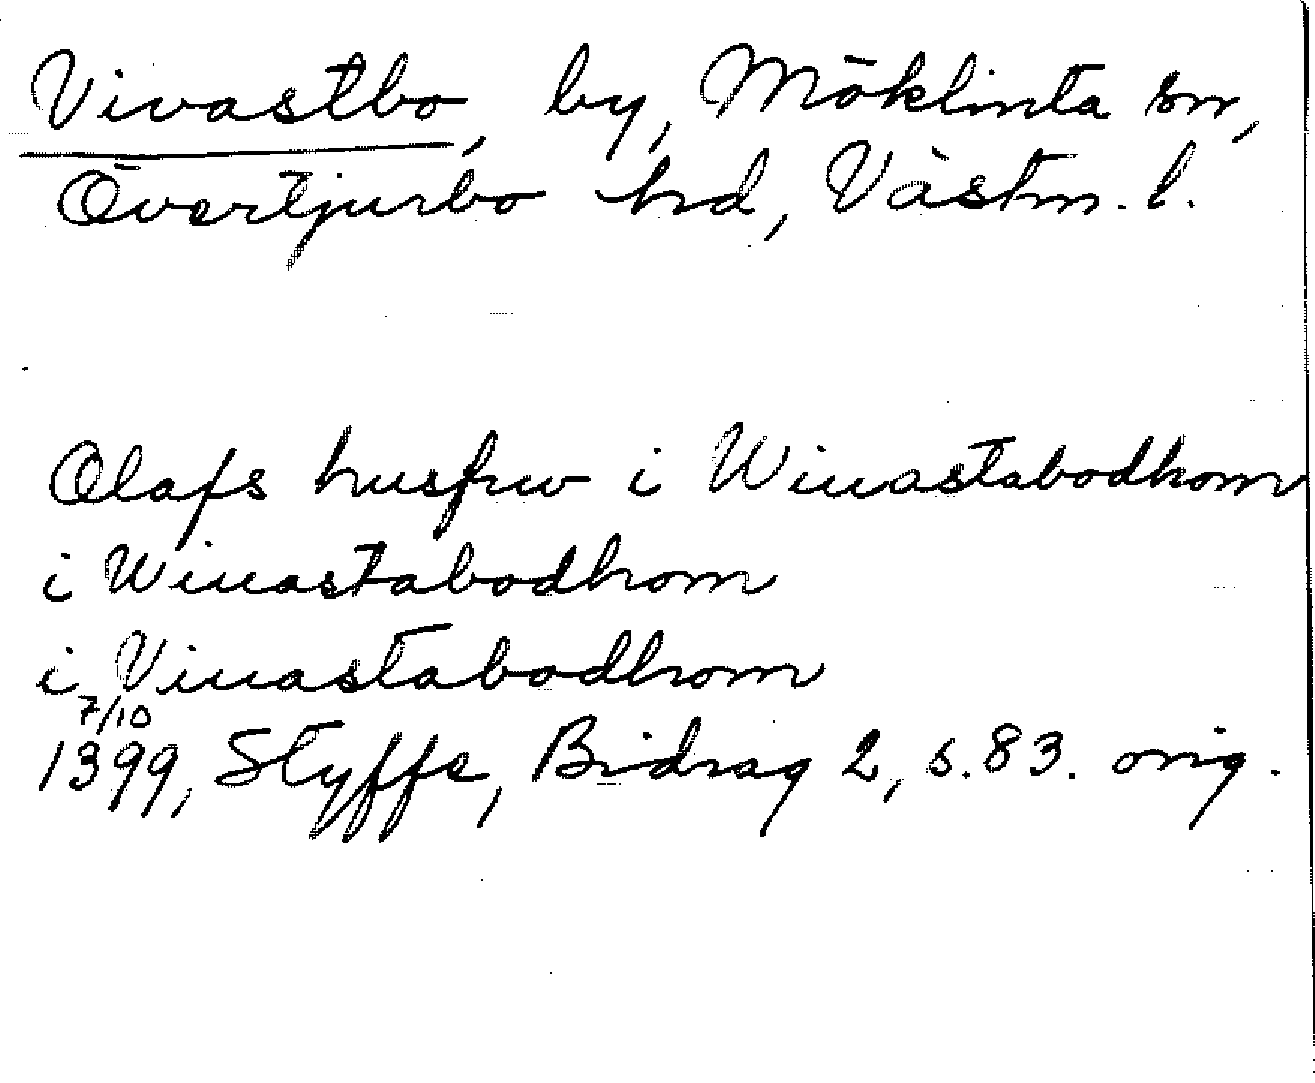 Vivastbo, by, Möklinta sn,
Övertjurbo hd, Västm. l.
Olafs husfrw i Wiuastabodhom
i Wiuastabodhom
i Viuastabodhom
7/10
1399, Styffe, Bidrag 2, s. 83. orig.